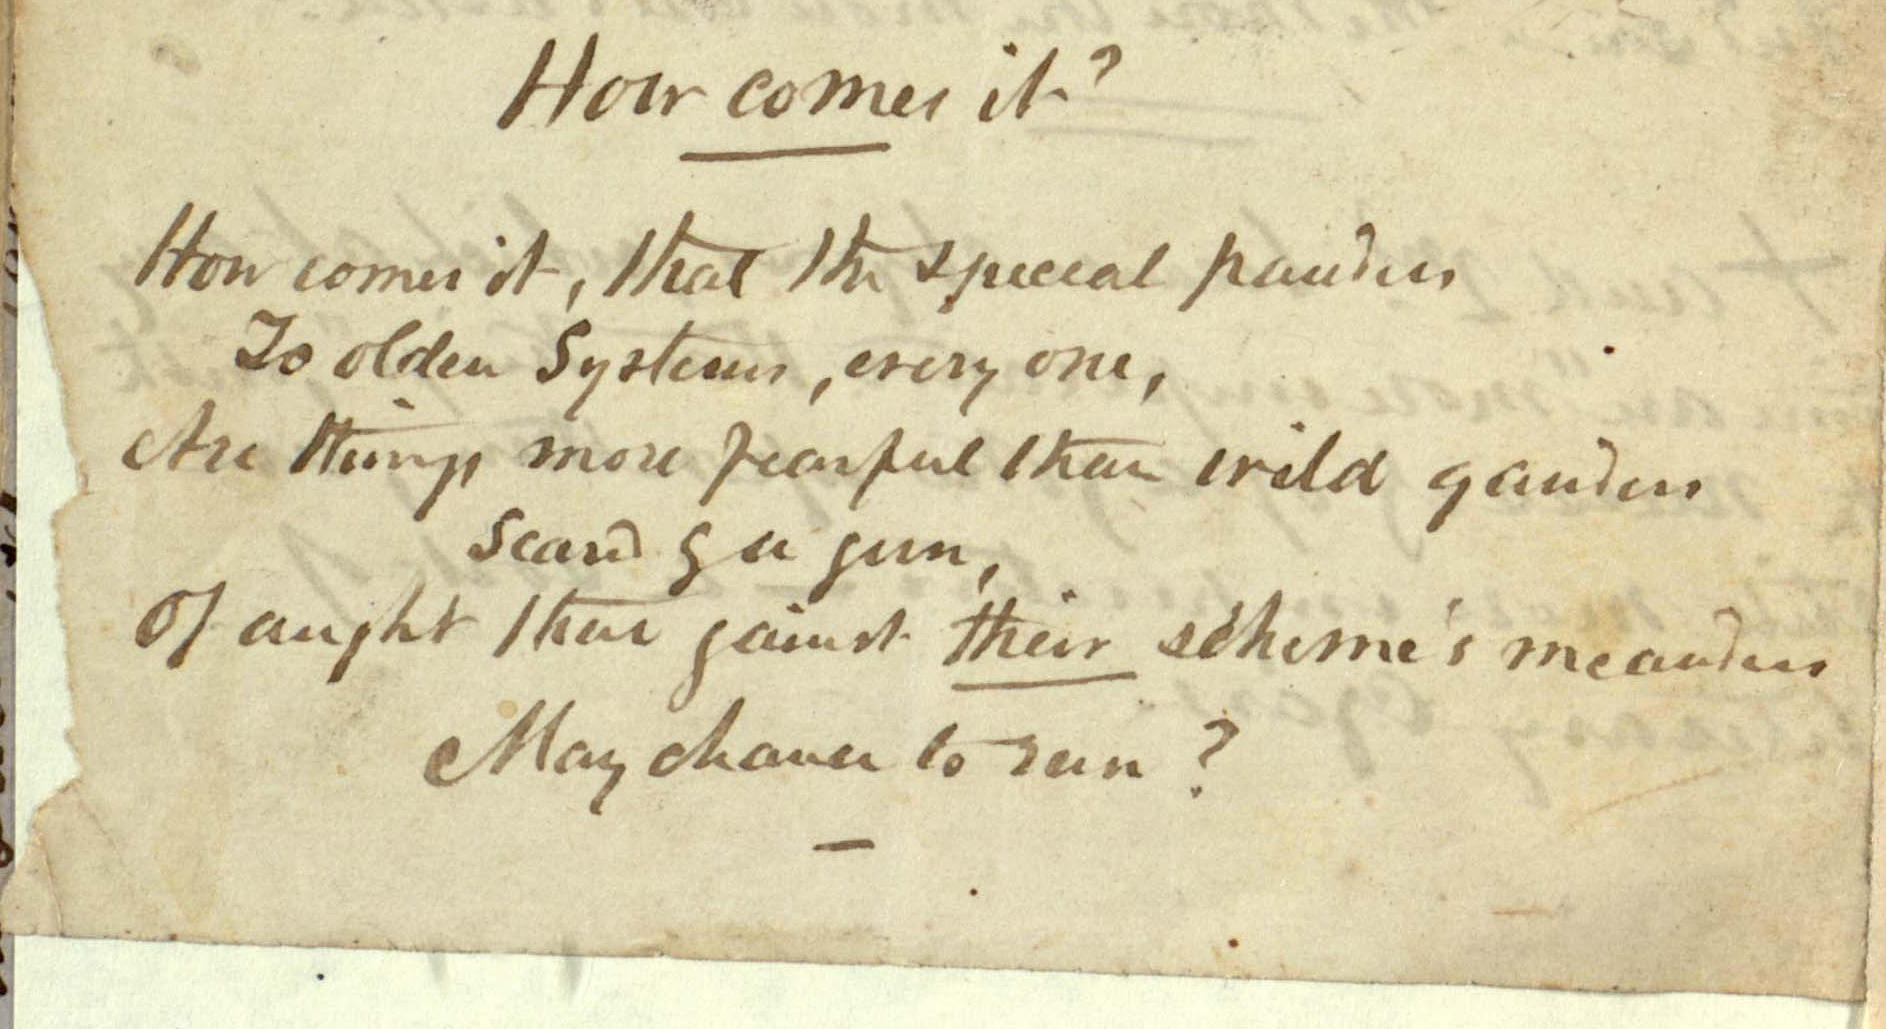 How comes it?
How comes it, that the special panders
To olden Systems, every one,
Are things more fearful than wild ganders
Scard by a gun,
Of aught that gainst their scheme's meanders
May chance to run?